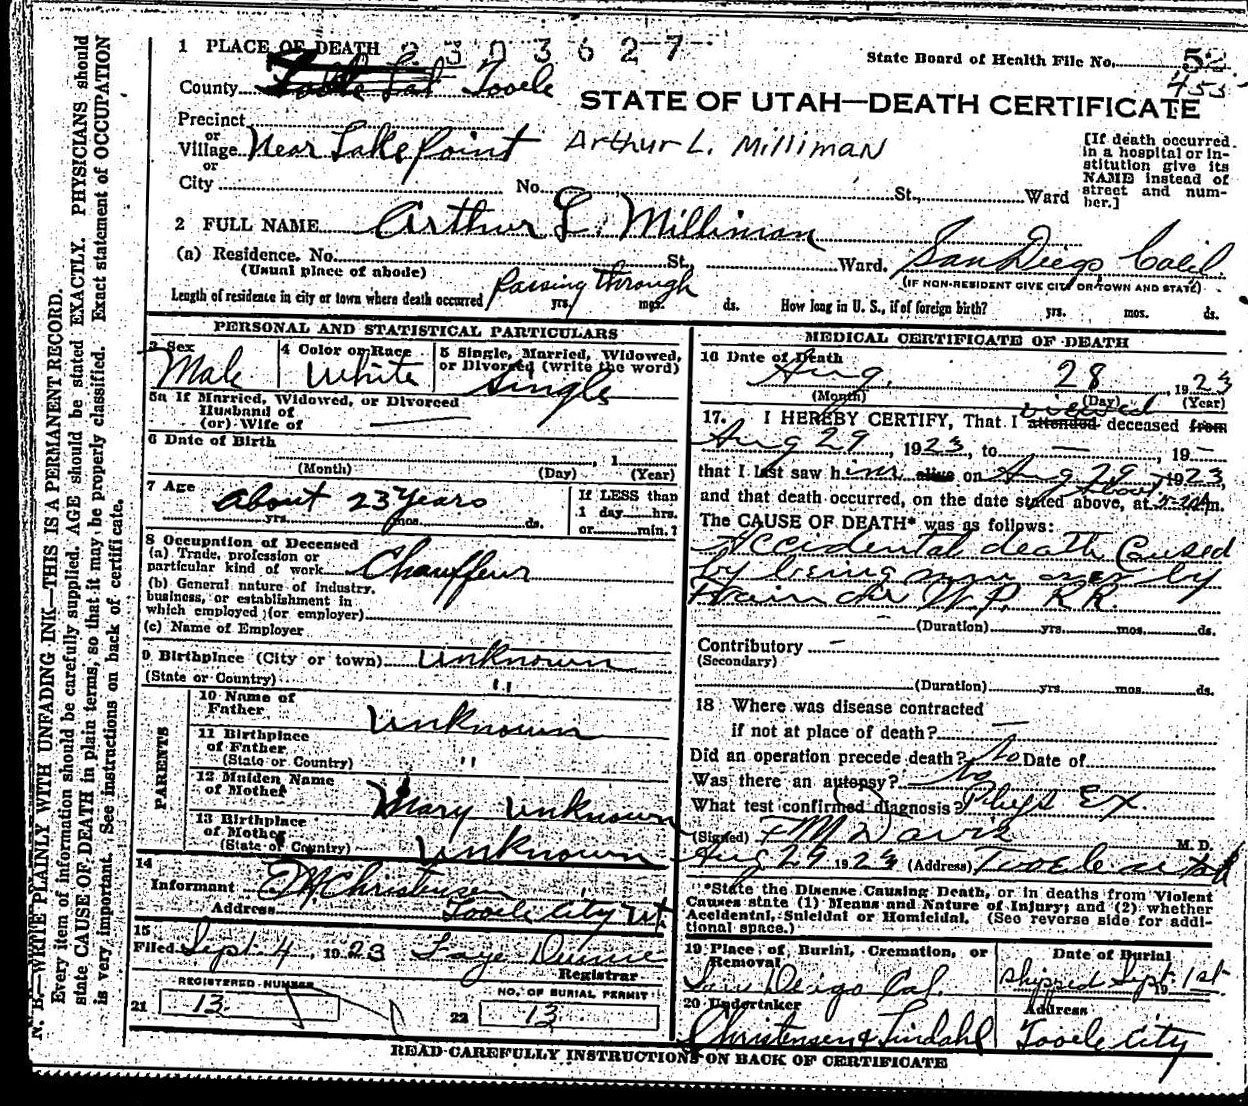 1 PLACE OF DEATH 2303627
State Board of Health File No. 52
453
County Tooele
STATE OF UTAH—DEATH CERTIFICATE
Precinct
or
Village Near Lake Point Arthur L. Milliman
or
City No. St., Ward
[If death occurred in a hospital or in-
stitution give its
NAME instead of
street and num-
ber.]
2 FULL NAME Arthur L. Milliman
(a) Residence. No. St., Ward. San Diego, Calif.
(Usual place of abode) (IF NON-RESIDENT GIVE CITY OR TOWN AND STATE)
Length of residence in city or town where death occurred Passing through yrs. mos. ds. How long in U. S., if of foreign birth? yrs. mos. ds.
PERSONAL AND STATISTICAL PARTICULARS
3 Sex Male
4 Color or Race White
5 Single, Married, Widowed,
or Divorced (write the word)
Single
5a If Married, Widowed, or Divorced
Husband of
(or) Wife of
6 Date of Birth , 1
(Month) (Day) (Year)
7 Age about 23 Years
yrs. mos. ds.
If LESS than
1 day hrs.
or min.?
8 Occupation of Deceased
(a) Trade, profession or
particular kind of work Chauffeur
(b) General nature of industry,
business, or establishment in
which employed (or employer)
(c) Name of Employer
9 Birthplace (City or town) Unknown
(State or Country) "
PARENTS
10 Name of
Father Unknown
11 Birthplace
of Father
(State or Country) "
12 Maiden Name
of Mother Mary Unknown
13 Birthplace
of Mother
(State or Country) Unknown
14
Informant Christensen
Address Tooele City Ut
15
Filed Sept. 4, 1923 Faye Dunne
Registrar
REGISTERED NUMBER
21 13
NO. OF BURIAL PERMIT
22 13
MEDICAL CERTIFICATE OF DEATH
16 Date of Death
Aug. 28 1923
(Month) (Day) (Year)
17. I HEREBY CERTIFY, That I attended viewed deceased from
Aug 29, 1923, to — , 19 —
that I last saw him alive on Aug 29, 1923,
and that death occurred, on the date stated above, at about m.
The CAUSE OF DEATH* was as follows:
Accidental death Caused
by being run over by
train on W.P. RR.
(Duration) yrs. mos. ds.
Contributory –
(Secondary)
(Duration) yrs. mos. ds.
18 Where was disease contracted
if not at place of death? —
Did an operation precede death? No Date of
Was there an autopsy? No
What test confirmed diagnosis? Phys Ex.
(Signed) F M Davis M. D.
Aug 29 1923 (Address) Tooele Utah
*State the Disease Causing Death, or in deaths from Violent
Causes state (1) Means and Nature of Injury; and (2) whether
Accidental, Suicidal or Homicidal. (See reverse side for addi-
tional space.)
19 Place of Burial, Cremation, or
Removal
San Deigo Cal.
Date of Burial
Shipped Sept. 1st
19
20 Undertaker
Christensen & Lindahl
Address
Tooele City
READ CAREFULLY INSTRUCTIONS ON BACK OF CERTIFICATE
N. B.—WRITE PLAINLY WITH UNFADING INK—THIS IS A PERMANENT RECORD.
Every item of information should be carefully supplied. AGE should be stated EXACTLY. PHYSICIANS should
state CAUSE OF DEATH in plain terms, so that it may be properly classified. Exact statement of OCCUPATION
is very important. See instructions on back of certificate.